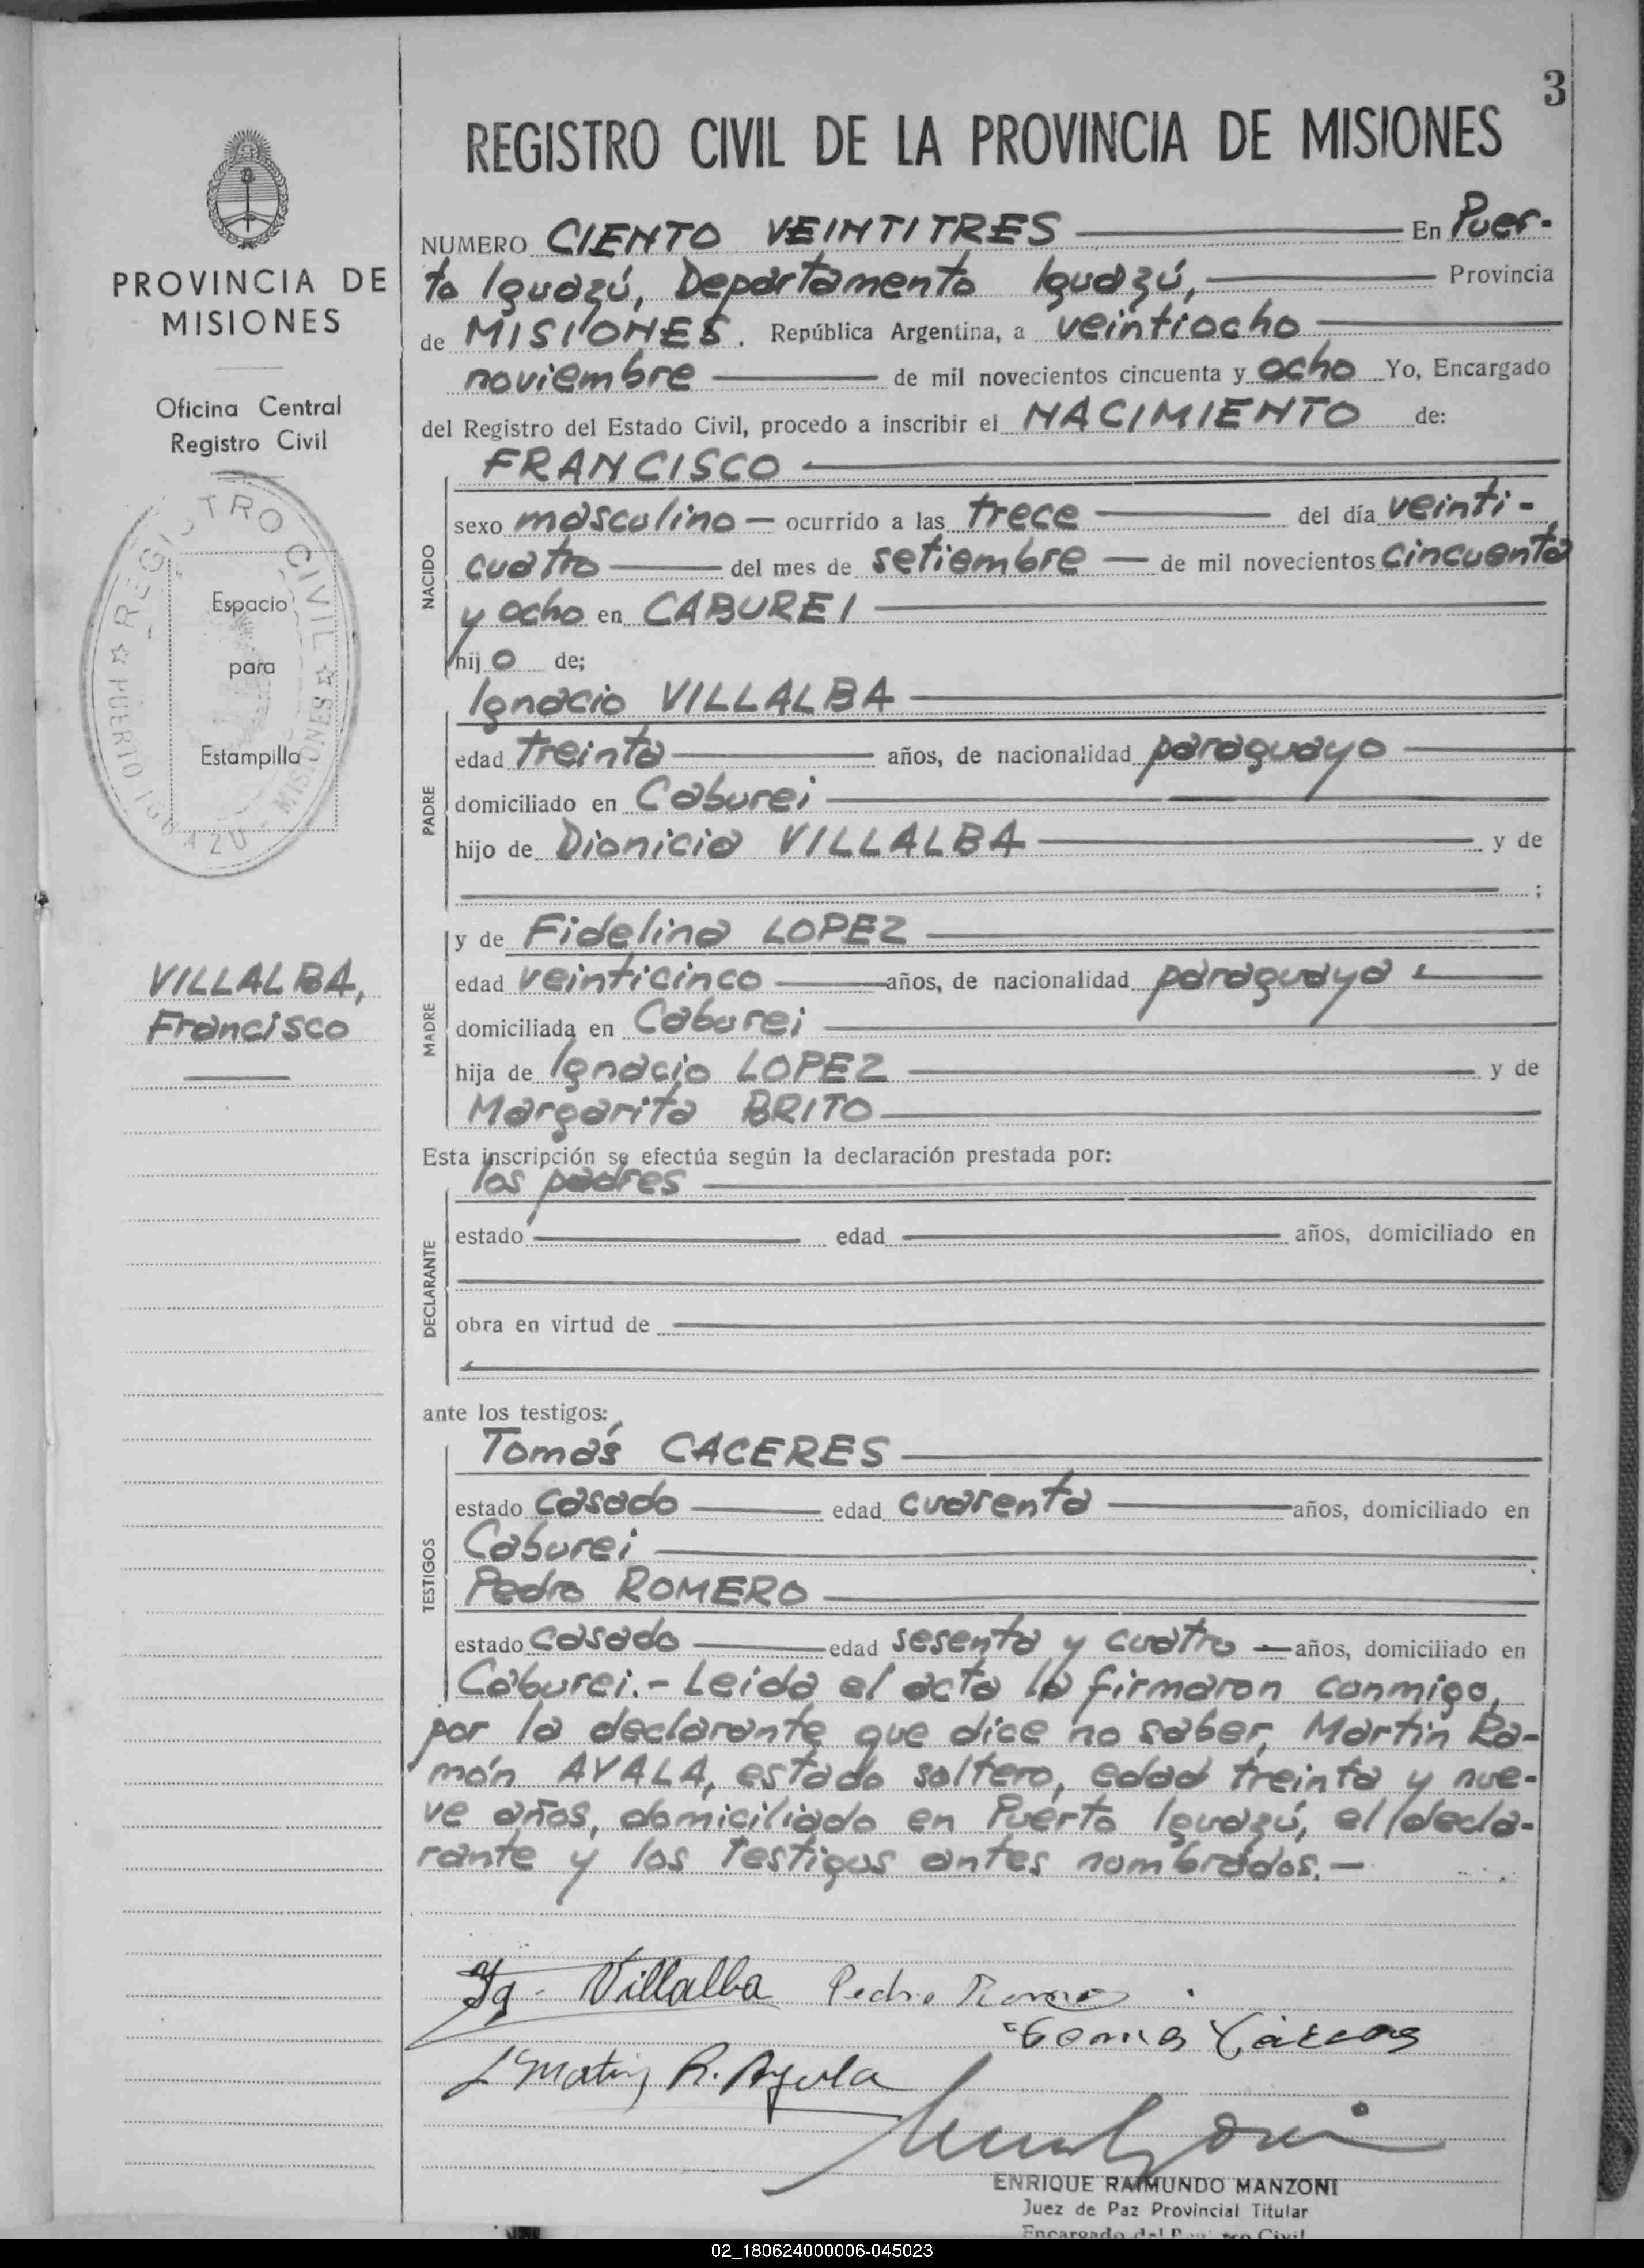 3
REGISTRO CIVIL DE LA PROVINCIA DE MISIONES
PROVINCIA DE
MISIONES
Oficina Central
Registro Civil
REGISTRO CIVIL ☆ MISIONES
PUERTO IGUAZU ☆
Espacio
para
Estampilla
VILLALBA,
Francisco
NUMERO CIENTO VEINTITRES En Puer-
to Iguazú, Departamento Iguazú, Provincia
de MISIONES. República Argentina, a veintiocho
noviembre de mil novecientos cincuenta y ocho Yo, Encargado
del Registro del Estado Civil, procedo a inscribir el NACIMIENTO de:
FRANCISCO
NACIDO
sexo masculino - ocurrido a las trece del día veinti-
cuatro del mes de setiembre - de mil novecientos cincuenta
y ocho en CABUREI
hijo de;
Ignacio VILLALBA
PADRE
edad treinta años, de nacionalidad paraguayo
domiciliado en Caburei
hijo de Dionicia VILLALBA y de
;
MADRE
y de Fidelina LOPEZ
edad veinticinco años, de nacionalidad paraguaya
domiciliada en Caburei
hija de Ignacio LOPEZ y de
Margarita BRITO
Esta inscripción se efectúa según la declaración prestada por:
los padres
DECLARANTE
estado edad años, domiciliado en
obra en virtud de
ante los testigos:
Tomás CACERES
TESTIGOS
estado casado edad cuarenta años, domiciliado en
Caburei
Pedro ROMERO
estado casado edad sesenta y cuatro - años, domiciliado en
Caburei.- Leida el acta la firmaron conmigo,
por la declarante que dice no saber, Martin Ra-
món AYALA, estado soltero, edad treinta y nue-
ve años, domiciliado en Puerto Iguazú, el decla-
rante y los testigos antes nombrados.-
Ig. Villalba Pedro Romero
Tomas Cáceres
R. Ayala
ENRIQUE RAIMUNDO MANZONI
Juez de Paz Provincial Titular
Encargado del Registro Civil
02_180624000006-045023